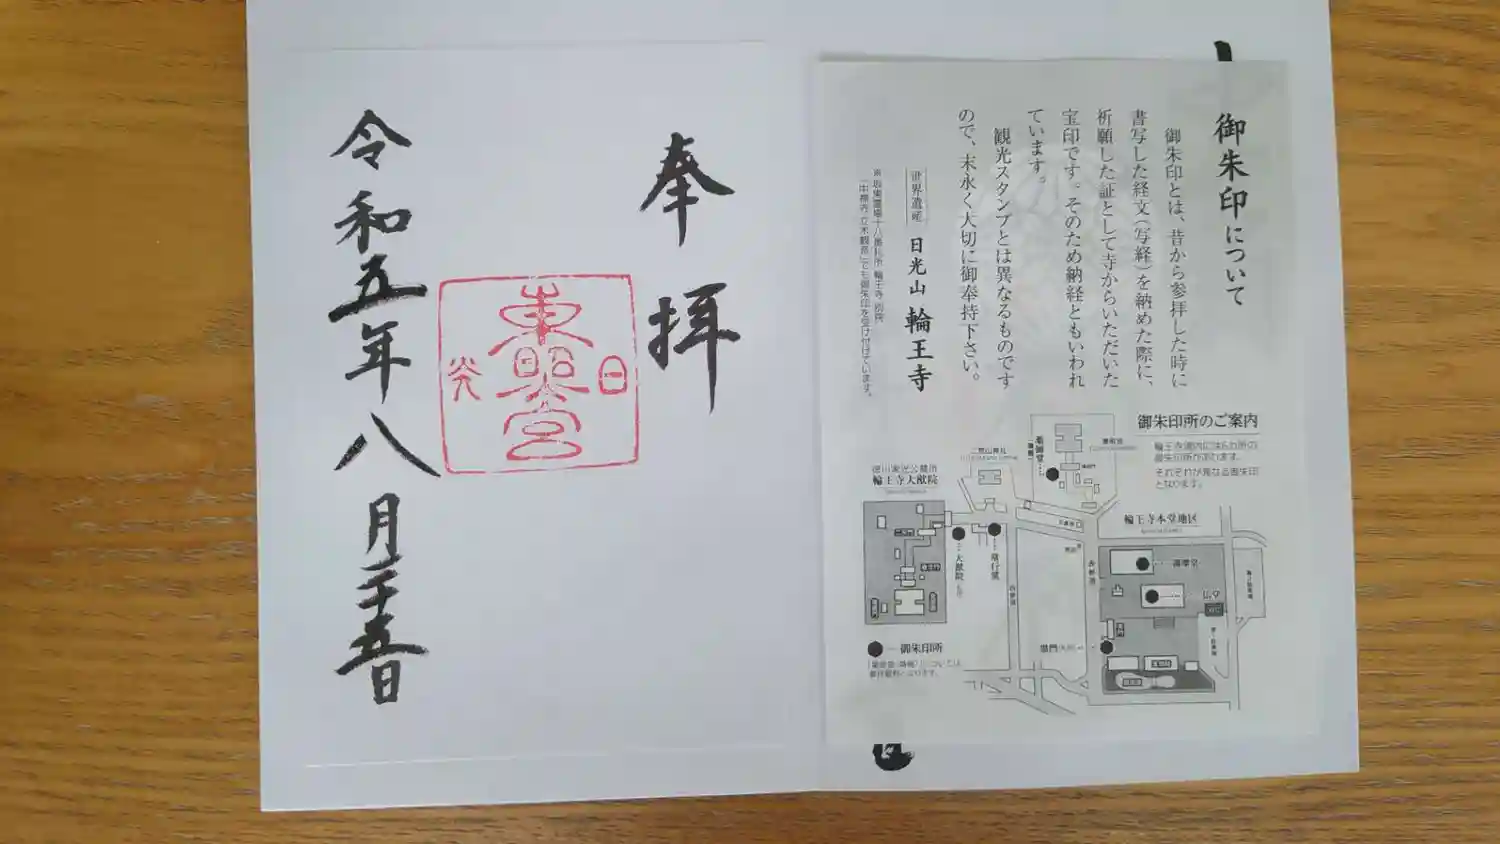 御朱印について
御朱印とは、昔から参拝した時に
書写した経文(写経)を納めた際に、
祈願した証として寺からいただいた
宝印です。そのため納経ともいわれ
ています。
観光スタンプとは異なるものです
ので、末永く大切に御奉持下さい。
世界遺産 日光山 輪王寺
御朱印所のご案内
それぞれが異なる御朱印
となります。
徳川家光公墓所
輪王寺大猷院
輪王寺本堂地区
薬師堂
大猷院
常行堂
護摩堂
御朱印所
奉拝
東照宮
日
光
令和五年八月二十五日